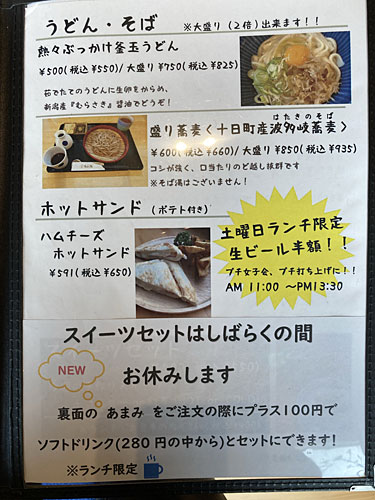 うどん・そば ※大盛り（２倍）出来ます！！
熱々ぶっかけ釜玉うどん
￥500(税込 ￥550)/ 大盛り ￥750(税込 ￥825)
茹でたてのうどんに生卵をからめ、
新潟産『むらさき』醤油でどうぞ！
はたきのそば
盛り蕎麦〈十日町産波多岐蕎麦〉
￥600(税込 ￥660)/ 大盛り ￥850(税込 ￥935)
コシが強く、口当たりのど越し抜群です
※そば湯はございません！
ホットサンド （ポテト付き）
ハムチーズ
ホットサンド
￥591(税込 ￥650)
土曜日ランチ限定
生ビール半額！！
プチ女子会、プチ打ち上げに！！
AM 11:00 ～PM13:30
スイーツセットはしばらくの間
NEW
お休みします
裏面の あまみ をご注文の際にプラス100円で
ソフトドリンク(280 円の中から)とセットにできます!
※ランチ限定